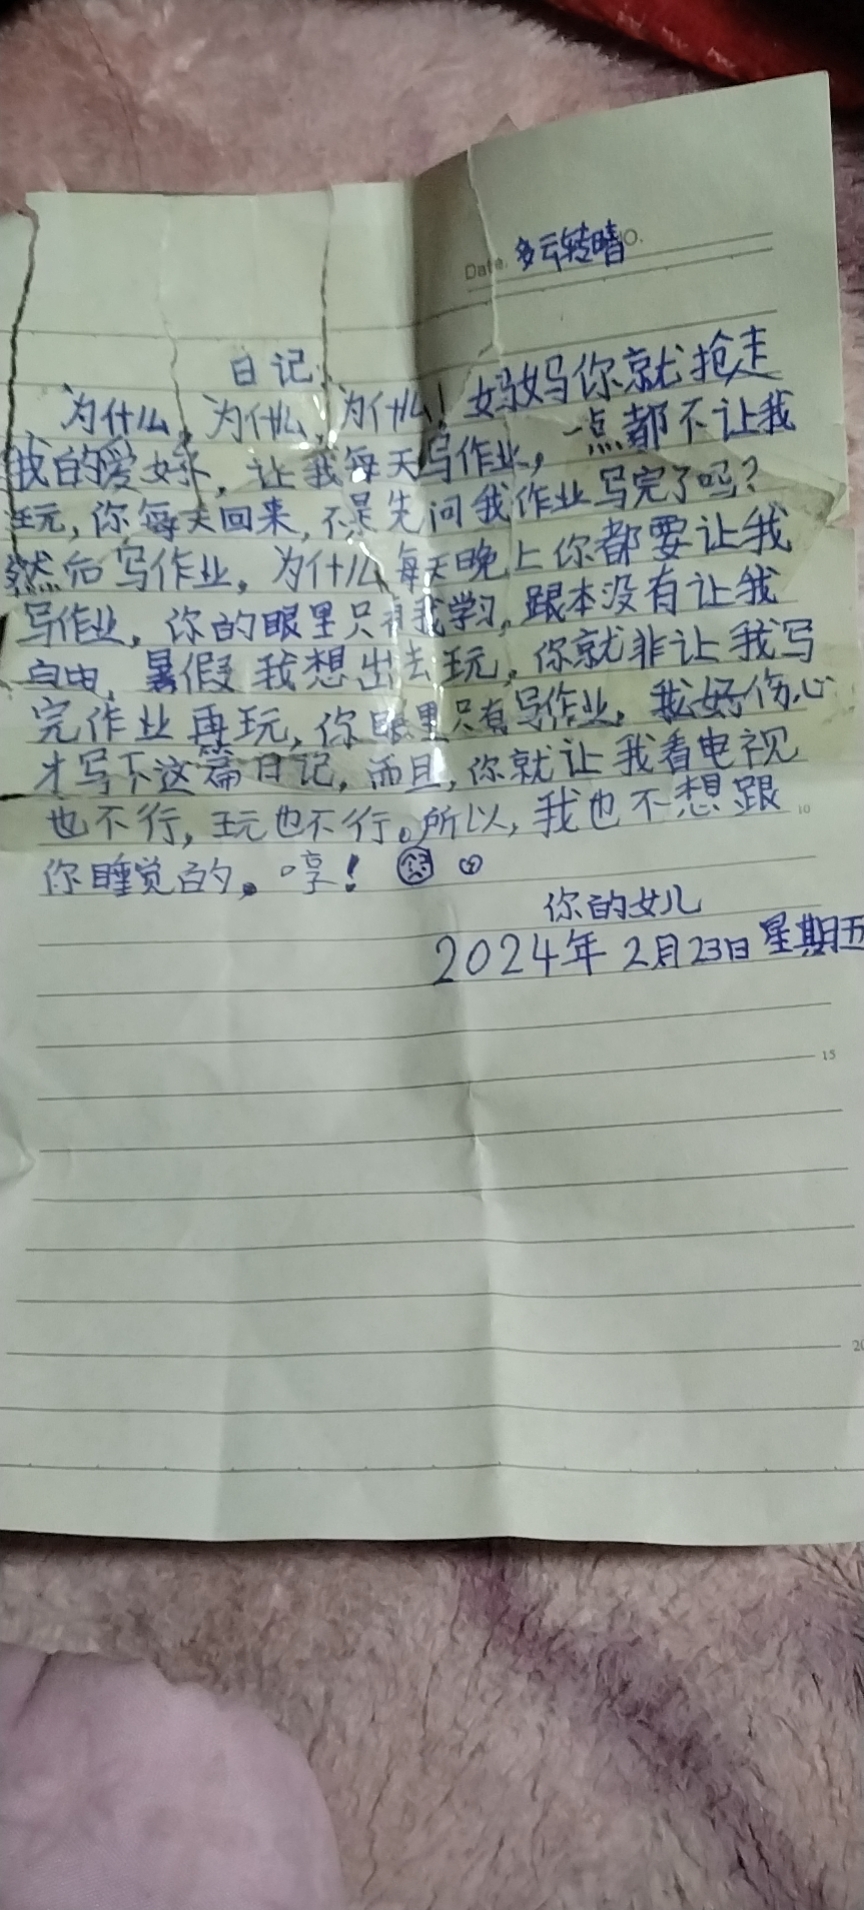 Date. 多云转晴 O.
日记
为什么,为什么,为什么!妈妈你就抢走
我的爱好,让我每天写作业,一点都不让我
玩,你每天回来,不是先问我作业写完了吗?
然后写作业,为什么每天晚上你都要让我
写作业,你的眼里只有我学习,跟本没有让我
自由,暑假我想出去玩,你就非让我写
完作业再玩,你眼里只有写作业,我好伤心
才写下这篇日记,而且,你就让我看电视
也不行,玩也不行。所以,我也不想跟
10
你睡觉的。哼!
你的女儿
2024年2月23日星期五
15
20